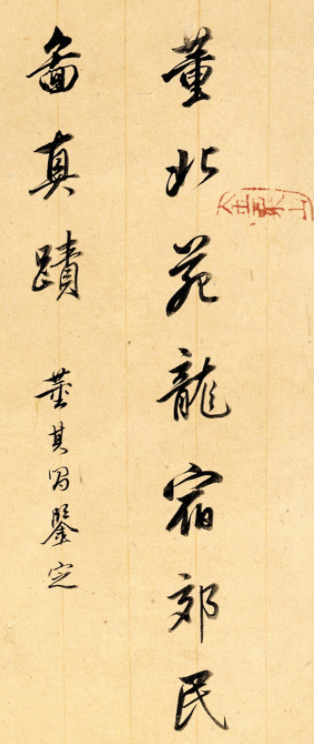 董北苑龍宿郊民
畵真蹟
董其昌鑒定